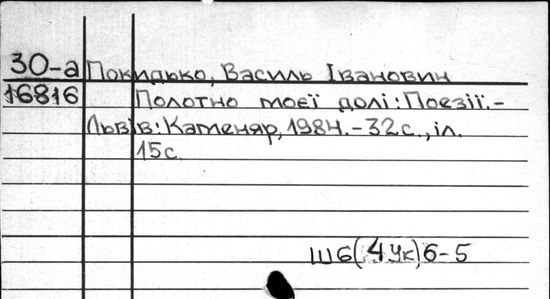 30-а Покидько, Василь Іванович
16816 Полотно моєї долі: Поезії.-
Львів: Каменяр, 1984.-32с., іл.
15с.
Ш6(4Ук)6-5